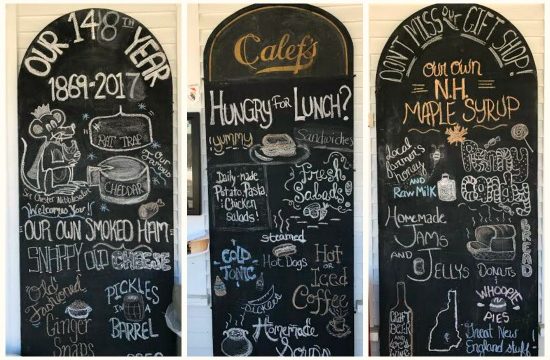 OUR 148TH YEAR
1869-2017
RAT TRAP
Our Famous
CHEDDAR
Sir Chester Nibblesalot
Welcomes You!!
OUR OWN SMOKED HAM
SNAPPY OLD CHEESE
Old Fashioned
Ginger
Snaps
PICKLES
IN A
BARREL
Calef's
HUNGRY FOR LUNCH?
yummy
Sandwiches
Daily-made
Potato, Pasta
Chicken
Salads!
Fresh
Salads
steamed
Hot Dogs
COLD
TONIC
Hot
OR
Iced
Coffee
PICKLES
Homemade
Soups
DON'T MISS OUR GIFT SHOP!
OUR OWN
N.H.
MAPLE SYRUP
Local
farmer's
honey
AND
Raw Milk
Penny
Candy
Homemade
JAMS
AND
JELLYS
BREAD
DONUTS
CRAFT
BEER
WHOOPIE
PIES
Great New
England stuff